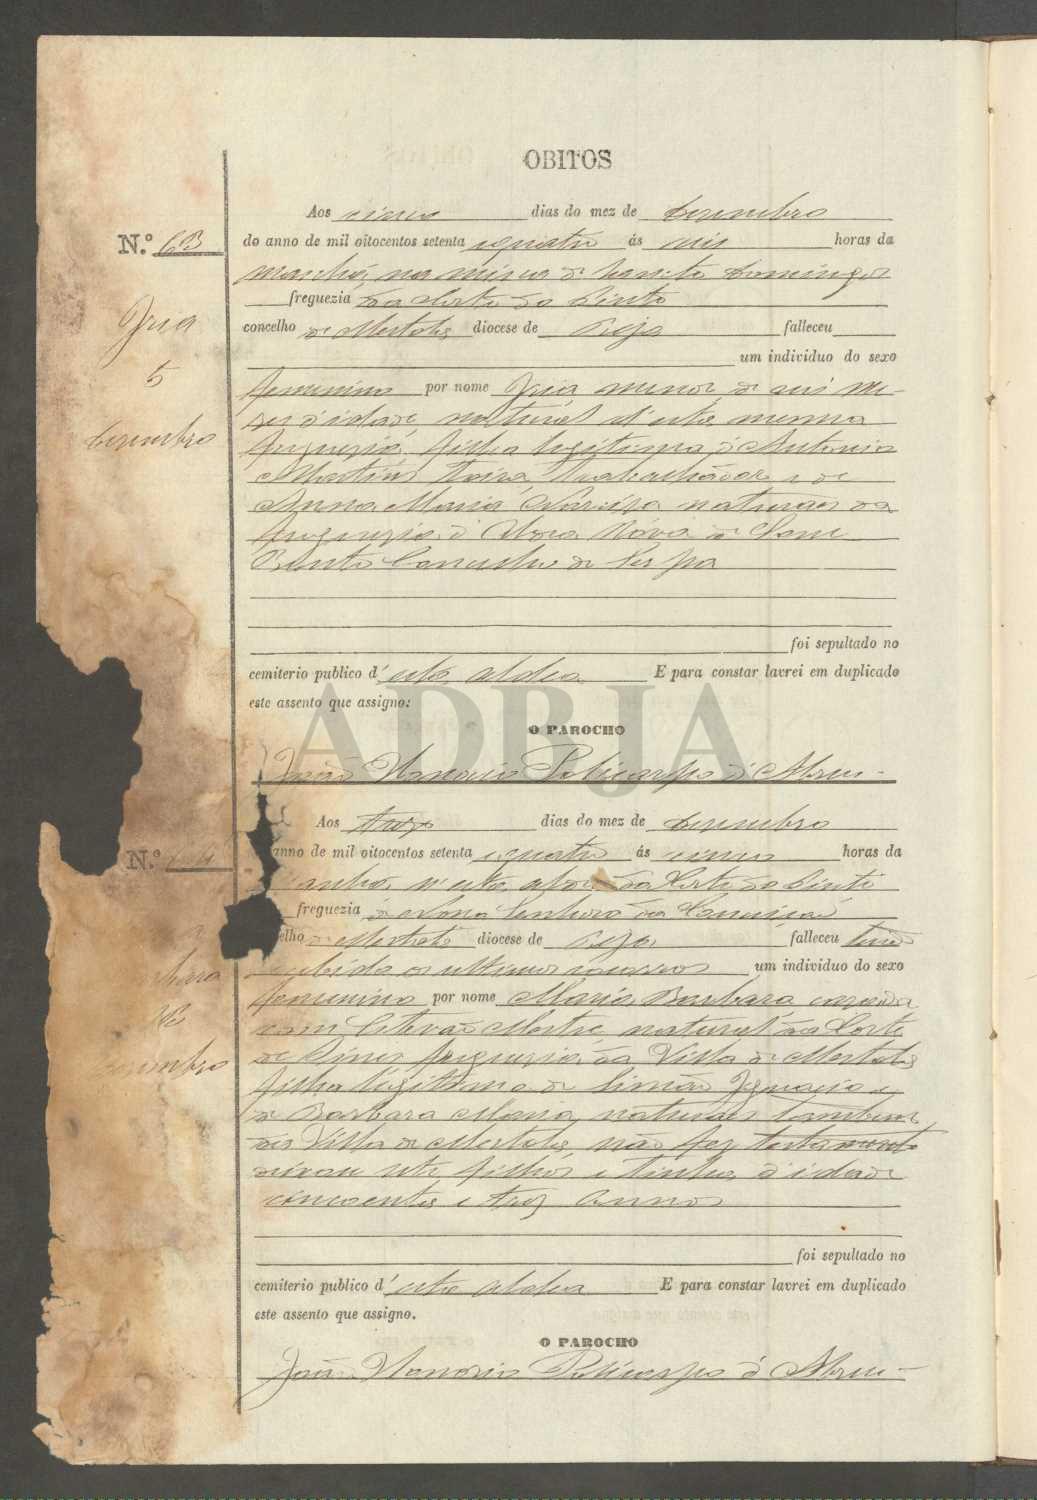 OBITOS
Aos cinco dias do mez de Dezembro
N.º 63
do anno de mil oitocentos setenta e quatro ás seis horas da
manhã, na mina de Santo Domingos
freguezia da Corte do Pinto
concelho de Mertola diocese de Beja falleceu
Iria
um individuo do sexo
5
femenino por nome Iria menor de seis me-
zes d'idade, natural d'esta mesma
Dezembro
freguezia, filha legitima d'Antonio
Martins trabalhador e de
Anna Maria naturaes da
freguezia d' Aldea Nova de Sam
Bento Concelho de Serpa
foi sepultado no
cemiterio publico d'esta aldea E para constar lavrei em duplicado
este assento que assigno:
O PAROCHO
João Honorio Policarpo d'Abreu
ADBJA
Aos trez dias do mez de Dezembro
N.º 64
anno de mil oitocentos setenta e quatro ás cinco horas da
manhã, n'esta aldea da Corte do Pinto
freguezia de Nossa Senhora da Conceição
elho de Mertola diocese de Beja falleceu tendo
recebido os ultimos socorros um individuo do sexo
femenino por nome Maria Barbara, cazada
com Estevão Mestre, natural da Corte
Dezembro
de Pines freguezia da Villa de Mertola
filha legitima de Simão Ignacio e
de Barbara Maria, naturaes tambem
da Villa de Mertola, não fez testamento
deixou sete filhos e tinha d'idade
cincoenta e trez annos
foi sepultado no
cemiterio publico d'esta aldea E para constar lavrei em duplicado
este assento que assigno.
O PAROCHO
João Honorio Policarpo d'Abreu